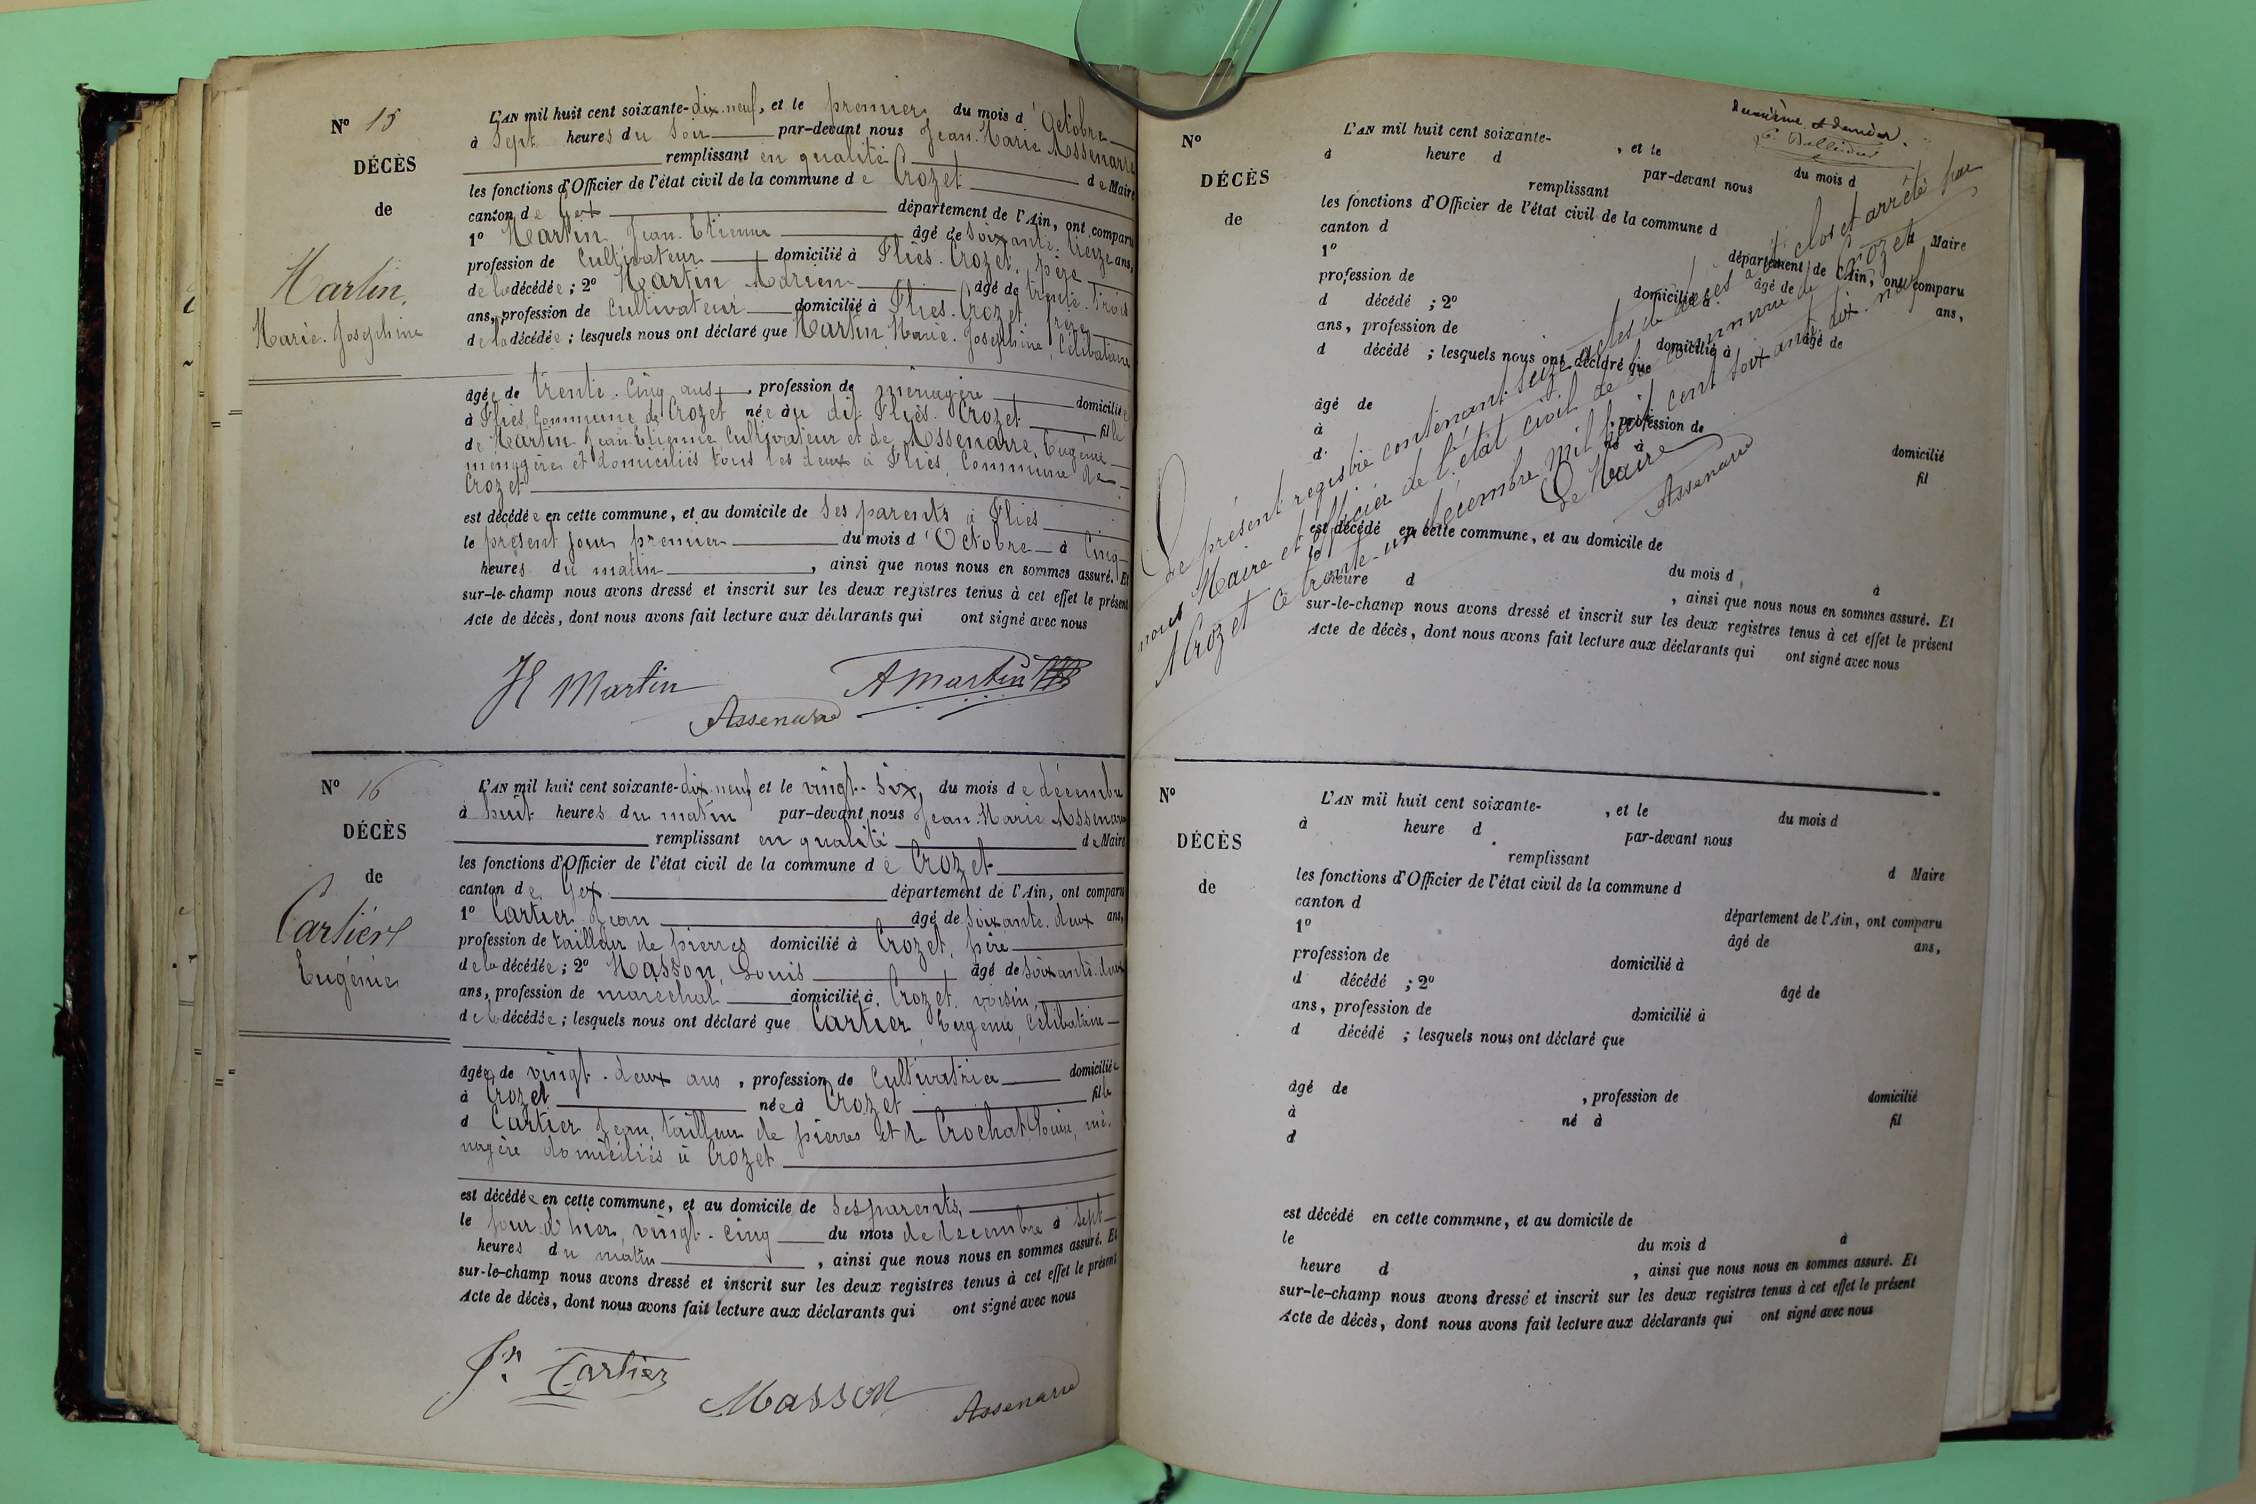 N° 15
DÉCÈS
de
Martin,
Marie. Josephine
L'AN mil huit cent soixante-dix-neuf, et le premier du mois d'Octobre
à sept heures du soir par-devant nous Jean. Marie Assenarre
remplissant en qualité de Maire
les fonctions d'Officier de l'état civil de la commune de Crozet
canton de Gex département de l'Ain, ont comparu
1° Martin Jean. Etienne âgé de soixante. treize ans,
profession de Cultivateur domicilié à Fliès. Crozet, père
de la décédée ; 2° Martin âgé de trente. trois
ans, profession de Cultivateur domicilié à Fliès. Crozet, frère
de la décédée ; lesquels nous ont déclaré que Martin Marie. Josephine, Célibataire
âgée de trente. Cinq ans, profession de ménagère domiciliée
à Fliès, Commune de Crozet née au dit Fliès. Crozet fille
de Martin Jean. Etienne Cultivateur et de Assenarre, Eugénie
ménagère et domiciliés tous les deux à Fliès, Commune de
Crozet
est décédée en cette commune, et au domicile de ses parents à Fliès
le présent jour premier du mois d'Octobre à Cinq
heures du matin, ainsi que nous nous en sommes assuré. Et
sur-le-champ nous avons dressé et inscrit sur les deux registres tenus à cet effet le présent
Acte de décès, dont nous avons fait lecture aux déclarants qui ont signé avec nous
JE Martin
A Martin
Assenarre
N° 16
DÉCÈS
de
Cartier
Eugénie
L'AN mil huit cent soixante-dix-neuf et le vingt-six, du mois de décembre
à huit heures du matin par-devant nous Jean. Marie Assenarre
remplissant en qualité de Maire
les fonctions d'Officier de l'état civil de la commune de Crozet
canton de Gex département de l'Ain, ont comparu
1° Cartier Jean âgé de soixante. deux ans,
profession de tailleur de pierres domicilié à Crozet, père
de la décédée ; 2° Masson, Louis âgé de soixante. deux
ans, profession de maréchal domicilié à Crozet, voisin,
de la décédée ; lesquels nous ont déclaré que Cartier, Eugénie, Célibataire
âgée de vingt. deux ans, profession de Cultivatrice domiciliée
à Crozet née à Crozet fille
d Cartier Jean, tailleur de pierres et de Crochat Louise, mé-
nagère domiciliés à Crozet
est décédée en cette commune, et au domicile de ses parents,
le jour d'hier, vingt. cinq du mois de decembre à sept
heures du matin, ainsi que nous nous en sommes assuré. Et
sur-le-champ nous avons dressé et inscrit sur les deux registres tenus à cet effet le présent
Acte de décès, dont nous avons fait lecture aux déclarants qui ont signé avec nous
Jn Cartier
Masson
Assenarre
deuxième et dernier.
N°
DÉCÈS
de
L'AN mil huit cent soixante- , et le du mois d
à heure d par-devant nous
remplissant d Maire
les fonctions d'Officier de l'état civil de la commune d
canton d département de l'Ain, ont comparu
1° âgé de ans,
profession de domicilié à
d décédé ; 2° âgé de
ans, profession de domicilié à
d décédé ; lesquels nous ont déclaré que
âgé de , profession de domicilié
à né à fil
d
est décédé en cette commune, et au domicile de
le du mois d à
heure d , ainsi que nous nous en sommes assuré. Et
sur-le-champ nous avons dressé et inscrit sur les deux registres tenus à cet effet le présent
Acte de décès, dont nous avons fait lecture aux déclarants qui ont signé avec nous
Le présent registre contenant seize actes de décès a été clos et arrêté par
nous Maire et officier de l'état civil de la commune de Crozet
A Crozet ce trente-un décembre mil huit cent soixante dix-neuf
Le Maire
Assenarre
N°
DÉCÈS
de
L'AN mil huit cent soixante- , et le du mois d
à heure d par-devant nous
remplissant d Maire
les fonctions d'Officier de l'état civil de la commune d
canton d département de l'Ain, ont comparu
1° âgé de ans,
profession de domicilié à
d décédé ; 2° âgé de
ans, profession de domicilié à
d décédé ; lesquels nous ont déclaré que
âgé de , profession de domicilié
à né à fil
d
est décédé en cette commune, et au domicile de
le du mois d à
heure d , ainsi que nous nous en sommes assuré. Et
sur-le-champ nous avons dressé et inscrit sur les deux registres tenus à cet effet le présent
Acte de décès, dont nous avons fait lecture aux déclarants qui ont signé avec nous